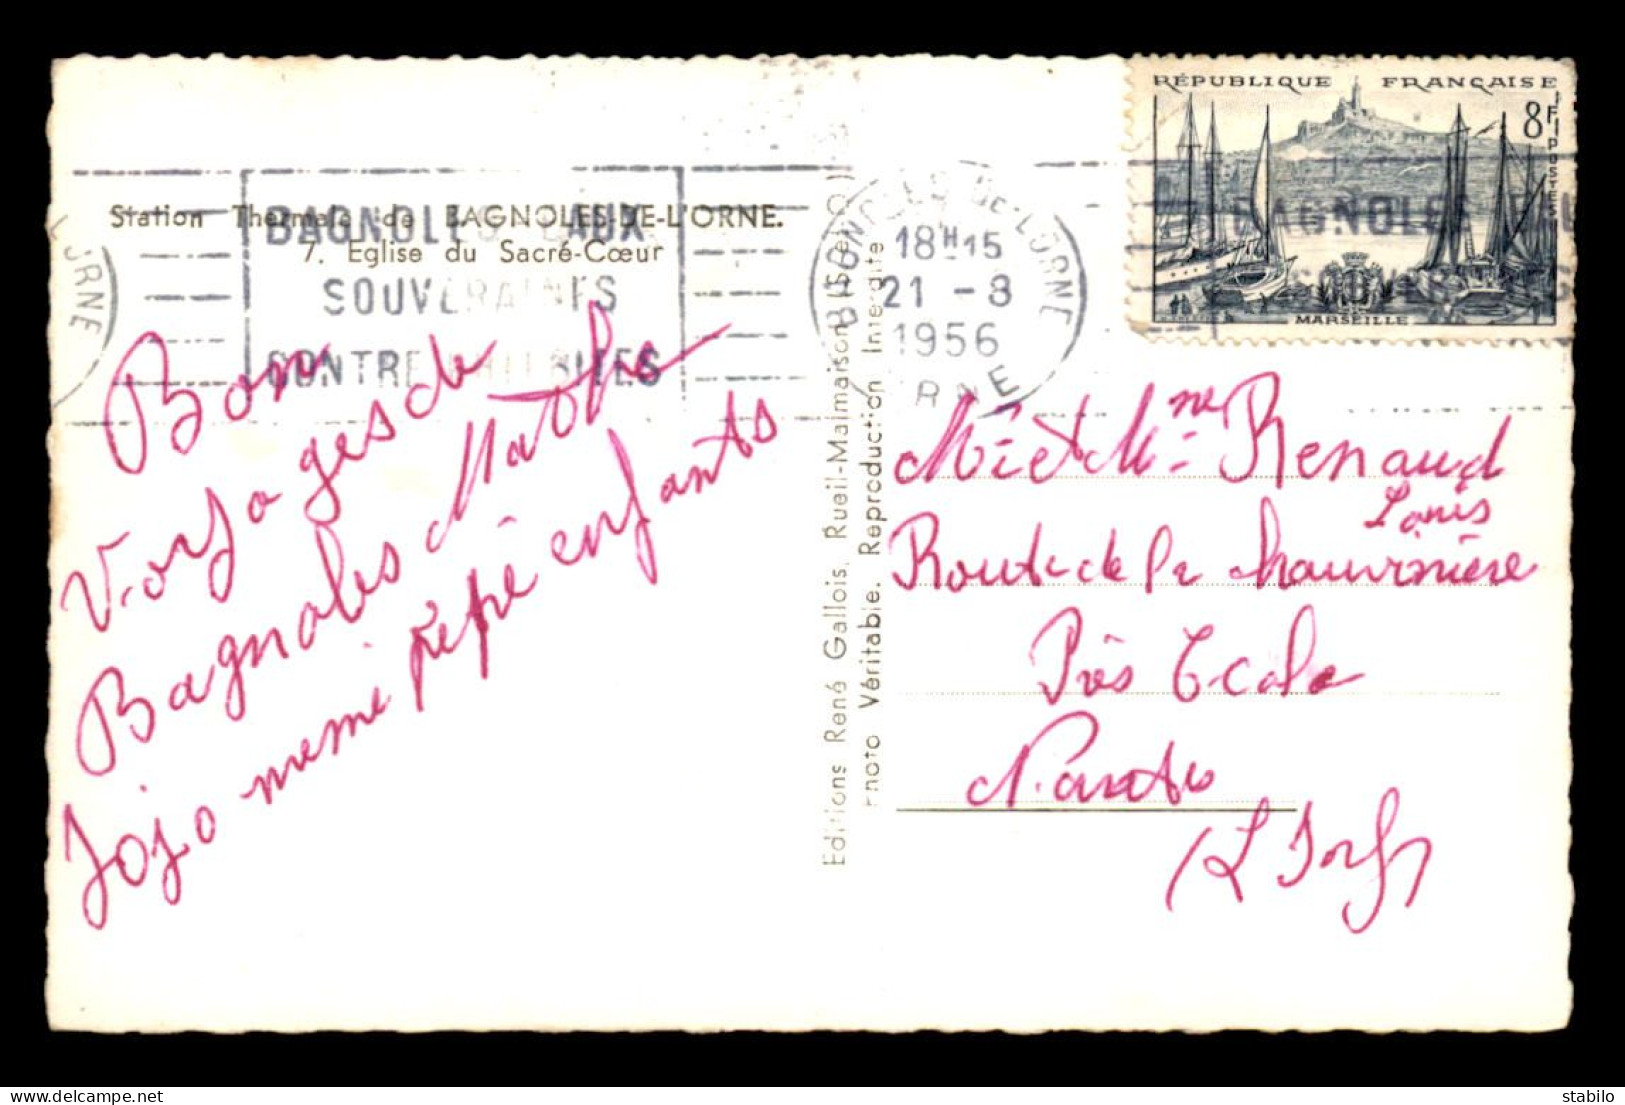 Station Thermale de BAGNOLES-DE-L'ORNE.
7. Eglise du Sacré-Cœur
BAGNOLES EAUX
SOUVERAINES
CONTRE PHLEBITES
Bon
Voyages de
Bagnoles Mathe
Jojo meme pépé enfants
Editions René Gallois, Rueil-Malmaison (S.-et-O.)
Photo Véritable. Reproduction Interdite
BAGNOLES-DE-L'ORNE
18H15
21-8
1956
ORNE
RÉPUBLIQUE FRANÇAISE
8F
POSTES
MARSEILLE
BAGNOLES
Mr et Mme Renaud
Louis
Route de la Chauvinière
Près Ecole
Nantes
L Inf
ORNE
stabilo